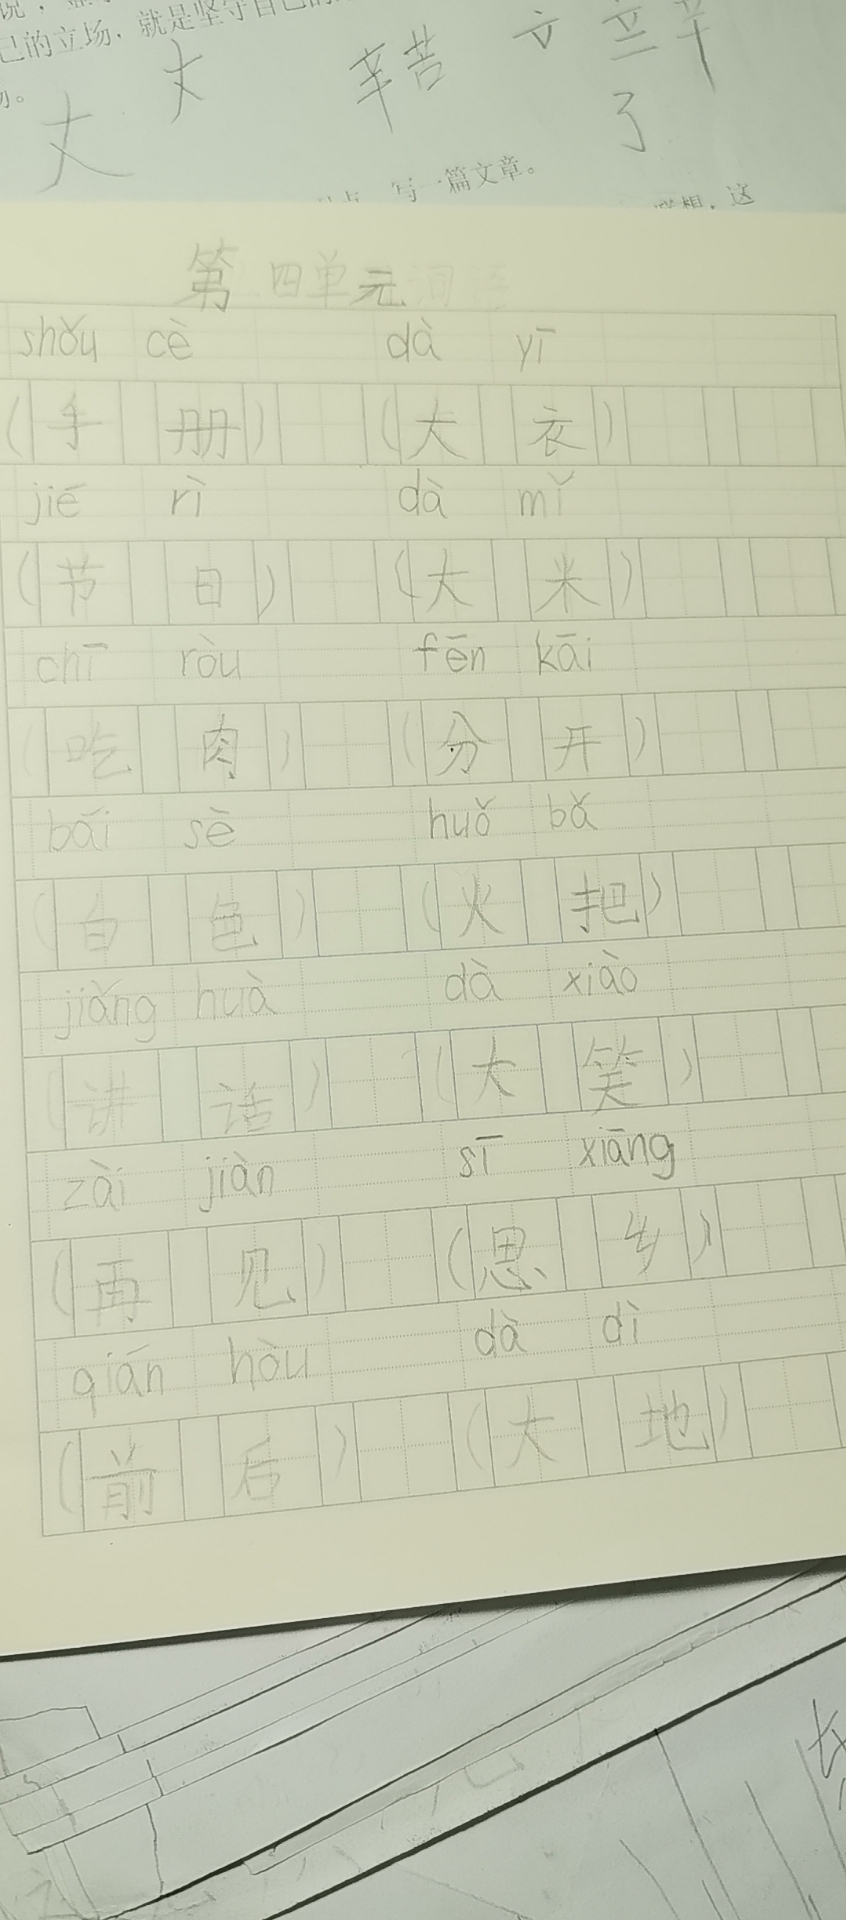 己的立场，就是坚守自己的
丈 丈 辛苦 立 立 辛
了
写一篇文章。
第四单元词语
shǒu cè dà yī
(手册) (大衣)
jié rì dà mǐ
(节日) (大米)
chī ròu fēn kāi
(吃肉) (分开)
bái sè huǒ bǎ
(白色) (火把)
jiǎng huà dà xiào
(讲话) (大笑)
zài jiàn sī xiāng
(再见) (思乡)
qián hòu dà dì
(前后) (大地)